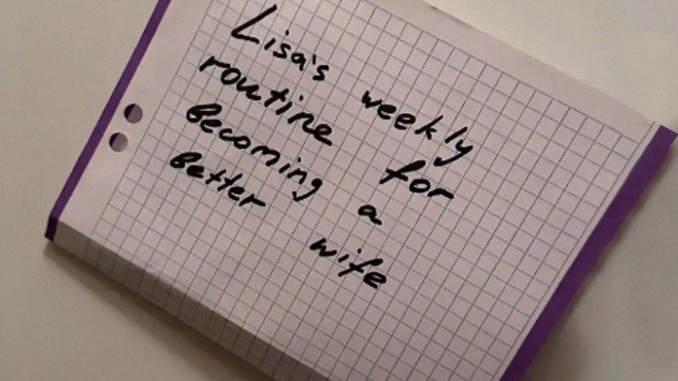 Lisa's weekly
routine for
becoming a
better wife